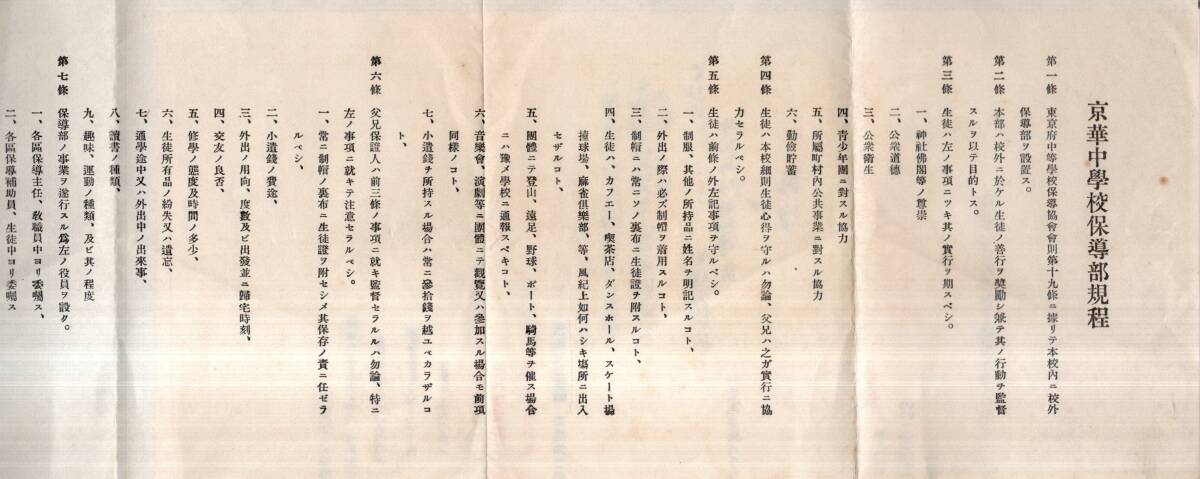 京華中學校保導部規程
第一條 東京府中等學校保導協會會則第十九條ニ據リテ本校內ニ校外
保導部ヲ設置ス。
第二條 本部ハ校外ニ於ケル生徒ノ善行ヲ奬勵シ兼テ其ノ行動ヲ監督
スルヲ以テ目的トス。
第三條 生徒ハ左ノ事項ニツキ其ノ實行ヲ期スベシ。
一、神社佛閣等ノ尊崇
二、公衆道德
三、公衆衛生
四、靑少年團ニ對スル協力
五、所屬町村內公共事業ニ對スル協力
六、勤儉貯蓄
第四條 生徒ハ本校細則生徒心得ヲ守ルハ勿論、父兄ハ之ガ實行ニ協
力セラルベシ。
第五條 生徒ハ前條ノ外左記事項ヲ守ルベシ。
一、制服、其他ノ所持品ニ姓名ヲ明記スルコト、
二、外出ノ際ハ必ズ制帽ヲ着用スルコト、
三、制帽ニハ常ニソノ裏布ニ生徒證ヲ附スルコト、
四、生徒ハ、カフエー、喫茶店、ダンスホール、スケート場
撞球場、麻雀俱樂部、等、風紀上如何ハシキ塲所ニ出入
セザルコト、
五、團體ニテ登山、遠足、野球、ボート、騎馬等ヲ催ス場合
ニハ豫メ學校ニ通報スベキコト、
六、音樂會、演劇等ニ團體ニテ觀覽又ハ參加スル場合モ前項
同樣ノコト、
七、小遣錢ヲ所持スル場合ハ常ニ參拾錢ヲ越ユベカラザルコ
ト、
第六條 父兄保證人ハ前三條ノ事項ニ就キ監督セラルルハ勿論、特ニ
左ノ事項ニ就キテ注意セラルベシ。
一、常ニ制帽ノ裏布ニ生徒證ヲ附セシメ其保存ノ責ニ任ゼラ
ルベシ、
二、小遣錢ノ費途、
三、外出ノ用向、度數及ビ出發並ニ歸宅時刻、
四、交友ノ良否、
五、修學ノ態度及時間ノ多少、
六、生徒所有品ノ紛失又ハ遺忘、
七、通學途中又ハ外出中ノ出來事、
八、讀書ノ種類、
九、趣味、運動ノ種類、及ビ其ノ程度
第七條 保導部ノ事業ヲ遂行スル爲左ノ役員ヲ設ク。
一、各區保導主任、敎職員中ヨリ委囑ス、
二、各區保導補助員、生徒中ヨリ委囑ス